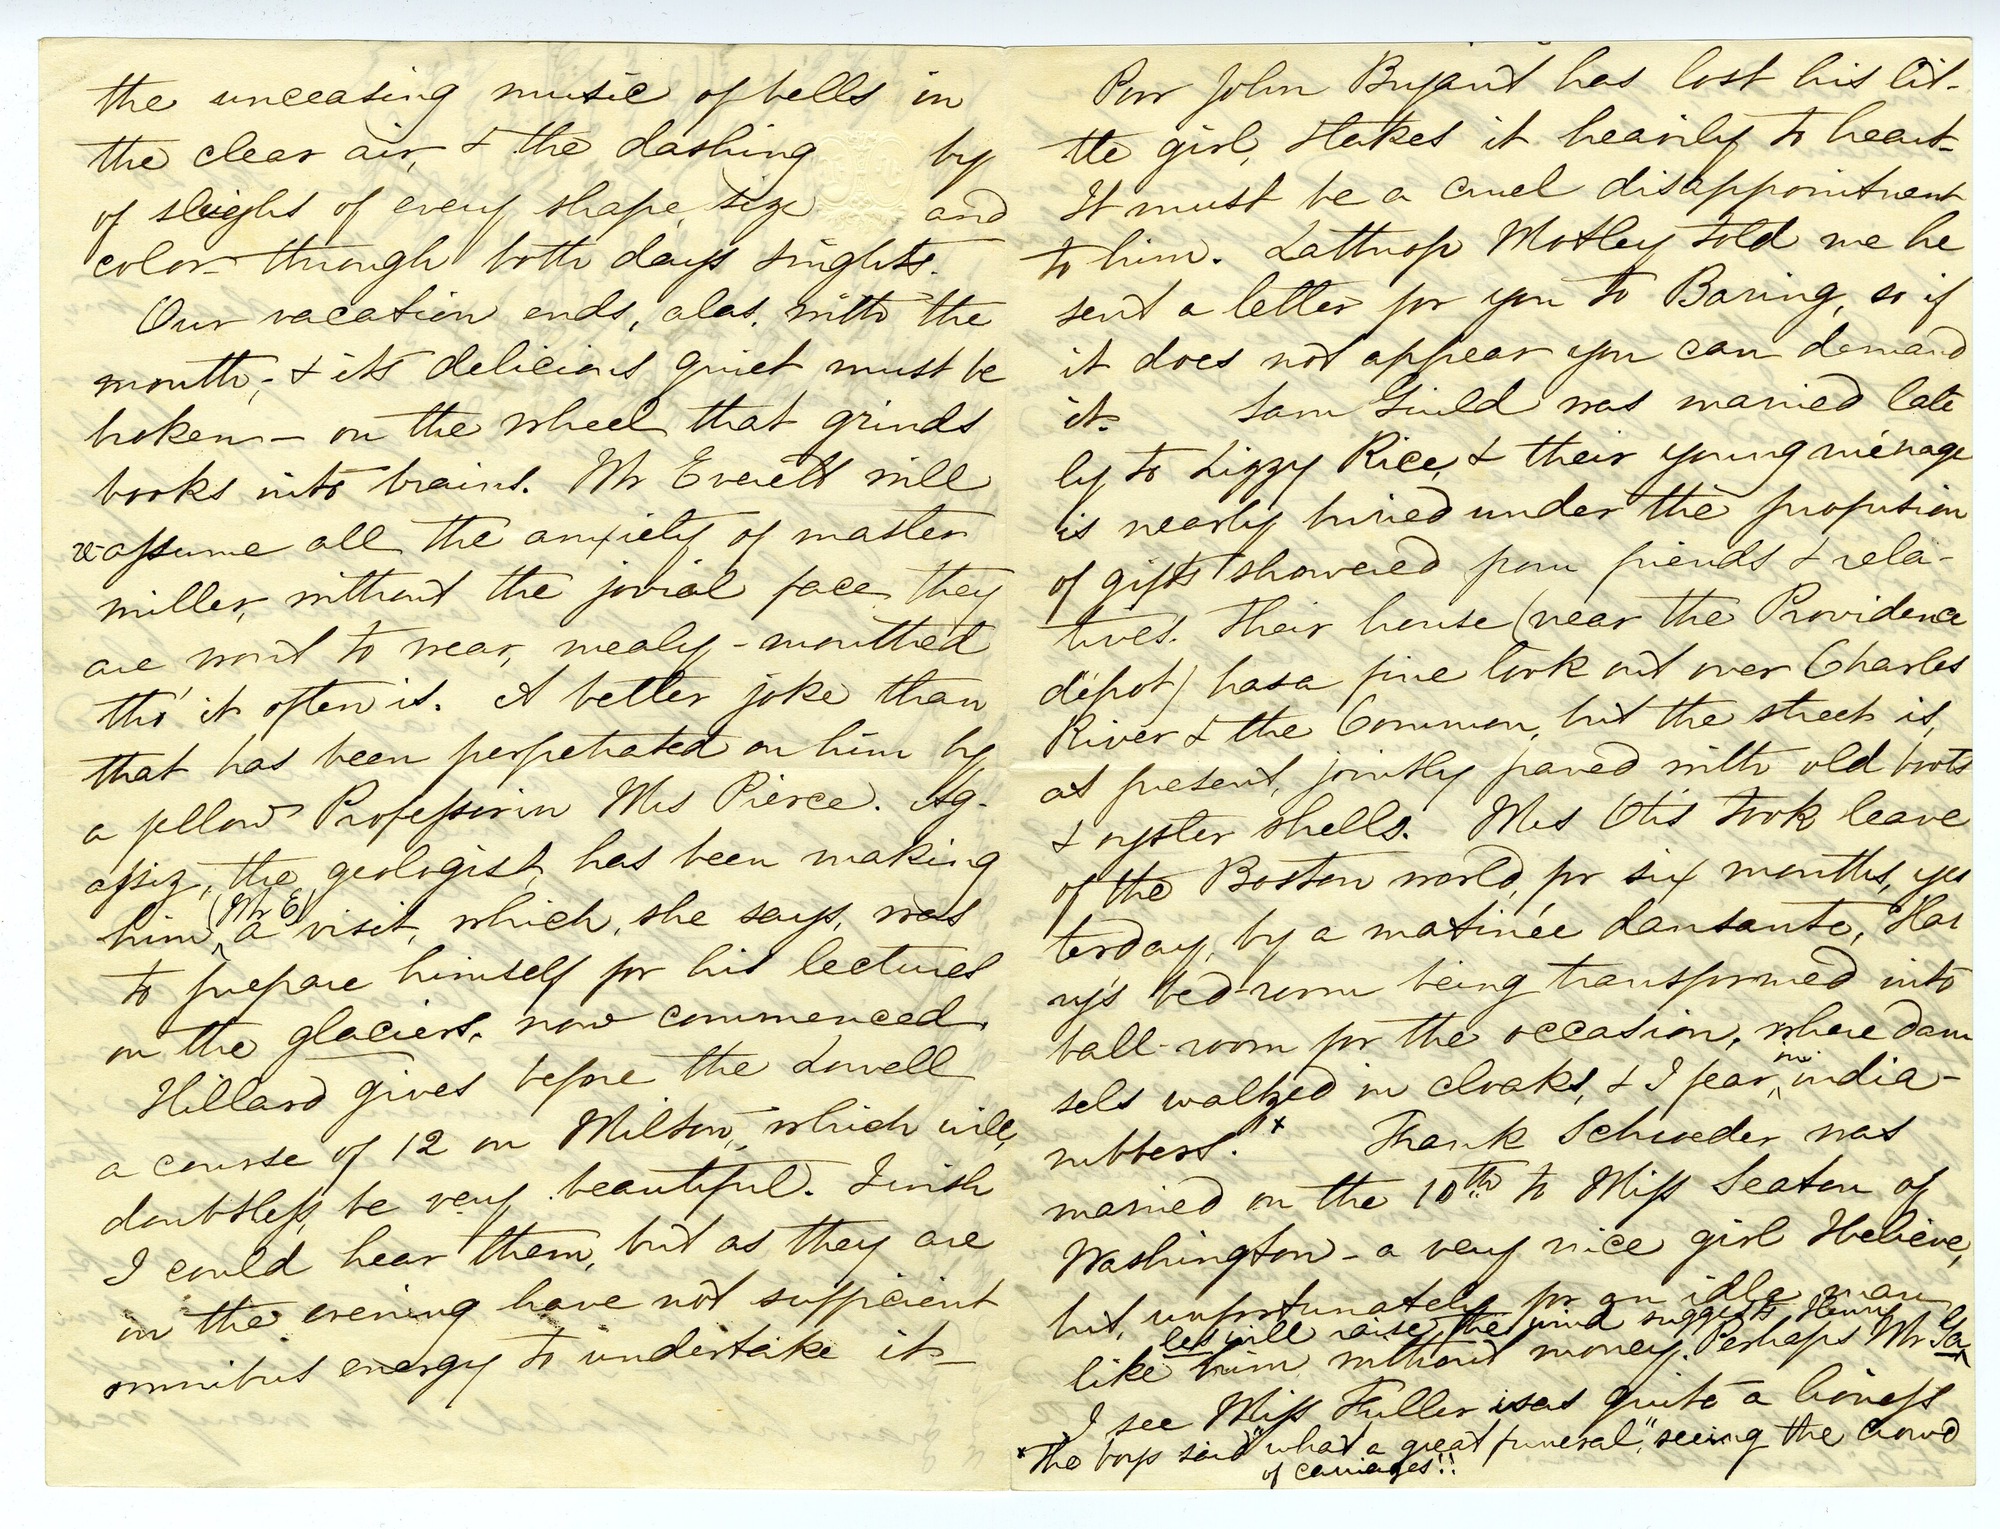 the unceasing music of bells in
the clear air, & the dashing by
of sleighs of every shape, size and
color through both days & nights.
Our vacation ends, alas, with the
month, - & its delicious quiet must be
broken — on the wheel that grinds
books into brains. Mr Everett will
re-assume all the anxiety of master
miller, without the jovial face they
are wont to wear, mealy-mouthed
tho' it often is. A better joke than
that has been perpetrated on him by
a fellow Professor in Mrs Pierce. Ag-
assiz, the geologist, has been making
him (Mr E) a visit, which, she says, was
to prepare himself for his lectures
on the glaciers, now commenced.
Hillard gives before the Lowell
a course of 12 on Milton, which will,
doubtless, be very beautiful. I wish
I could hear them, but as they are
in the evening have not sufficient
omnibus energy to undertake it —
Poor John Bryant has lost his lit-
tle girl, & takes it heavily to heart—
It must be a cruel disappointment
to him. Lathrop Motley told me he
sent a letter for you to Baring, so if
it does not appear you can demand
it. Sam Guild was married late
ly to Lizzy Rice, & their young ménage
is nearly buried under the profusion
of gifts showered from friends & rela-
tives. Their house (near the Providence
dépot) has a fine look out over Charles
River & the Common, but the street is,
at present, jointly paved with old boots
& oyster shells. Mrs Otis took leave
of the Boston world, for six months, yes
terday, by a matinée dansante, Har
ry's bed-room being transformed into
ball-room for the occasion, where dam
sels waltzed in cloaks, & I fear, in india-
rubbers.* Frank Schroeder was
married on the 10th to Miss Seaton of
Washington — a very nice girl I believe,
but, unfortunately for an idle man
like him, without money. Perhaps Mr Ga
les will raise the wind suggests Henry
I see Miss Fuller was quite a lioness
* The boys said "what a great funeral," seeing the crowd
of carriages!!